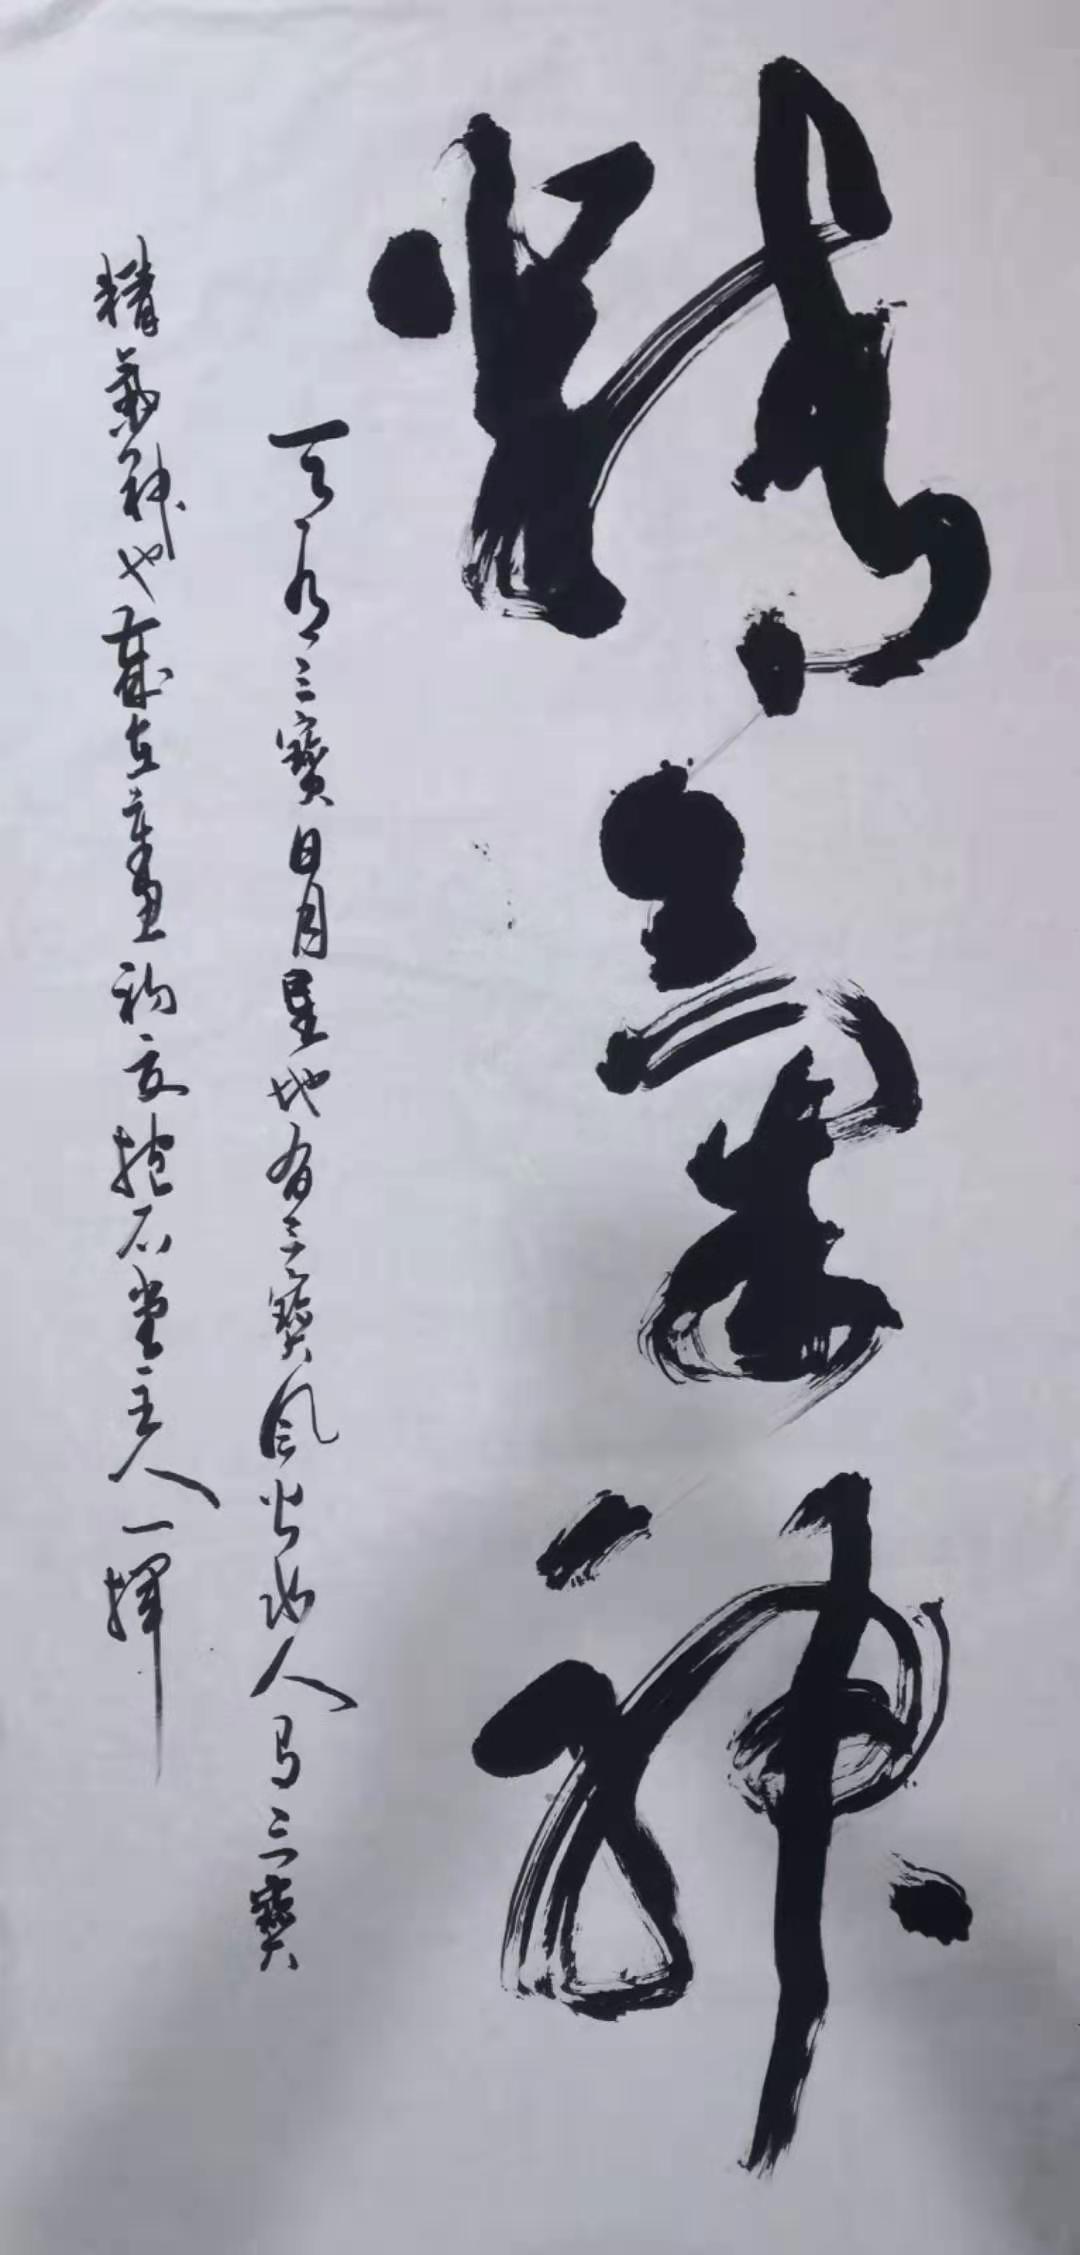 精氣神
天有三寶日月星地有三寶風火水人有三寶
精氣神也歲在壬寅初夏抱石堂主人一揮